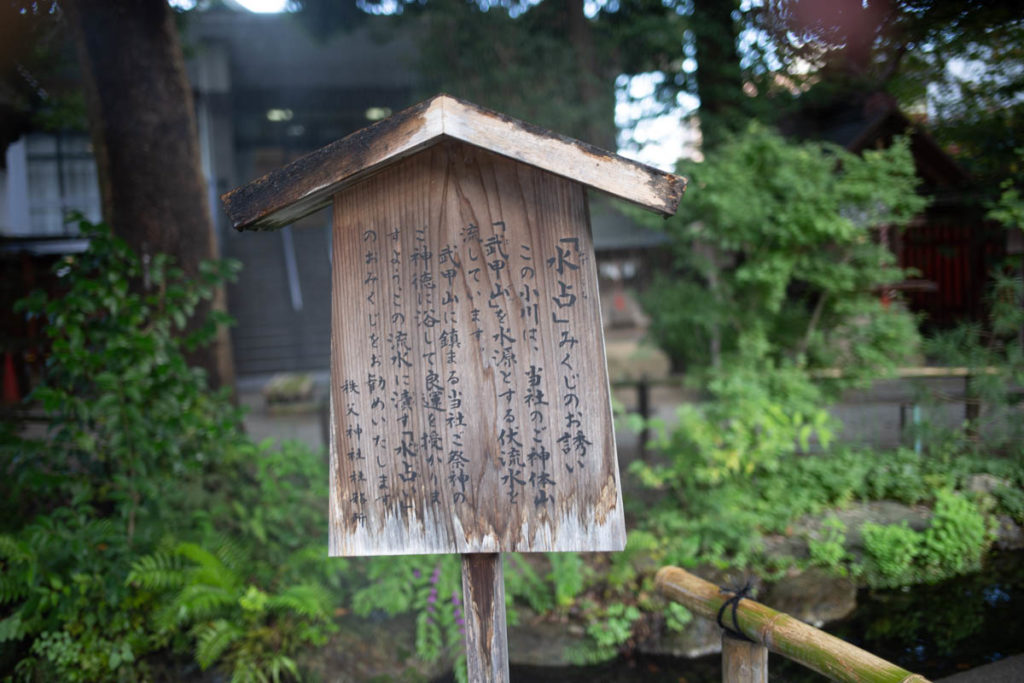 「水占」みくじのお誘い
この小川は、当社のご神体山
「武甲山」を水源とする伏流水を
流しています。
武甲山に鎮まる当社ご祭神の
ご神徳に浴して良運を授かりま
すようこの流水に浸す「水占」
のおみくじをお勧めいたします
秩父神社社務所